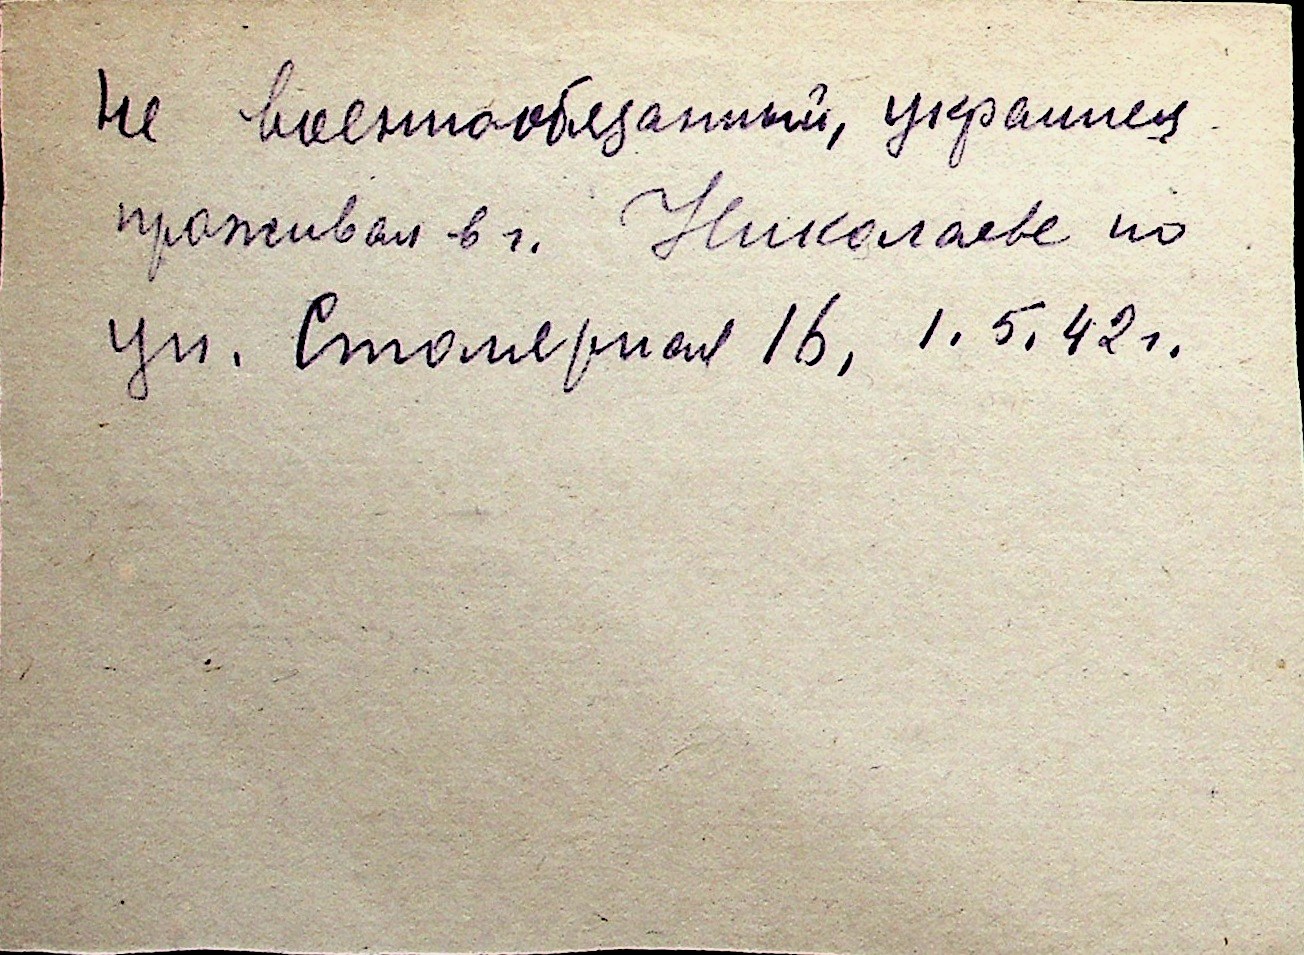 Не военнообязанный, украинец
проживал в г. Николаеве по
ул. Столярная 16, 1.5.42г.